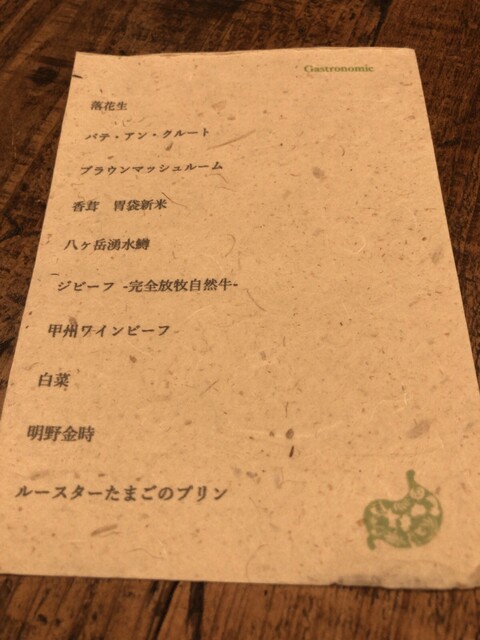 Gastronomic
落花生
パテ・アン・クルート
ブラウンマッシュルーム
香茸　胃袋新米
八ヶ岳湧水鱒
ジビーフ -完全放牧自然牛-
甲州ワインビーフ
白菜
明野金時
ルースターたまごのプリン